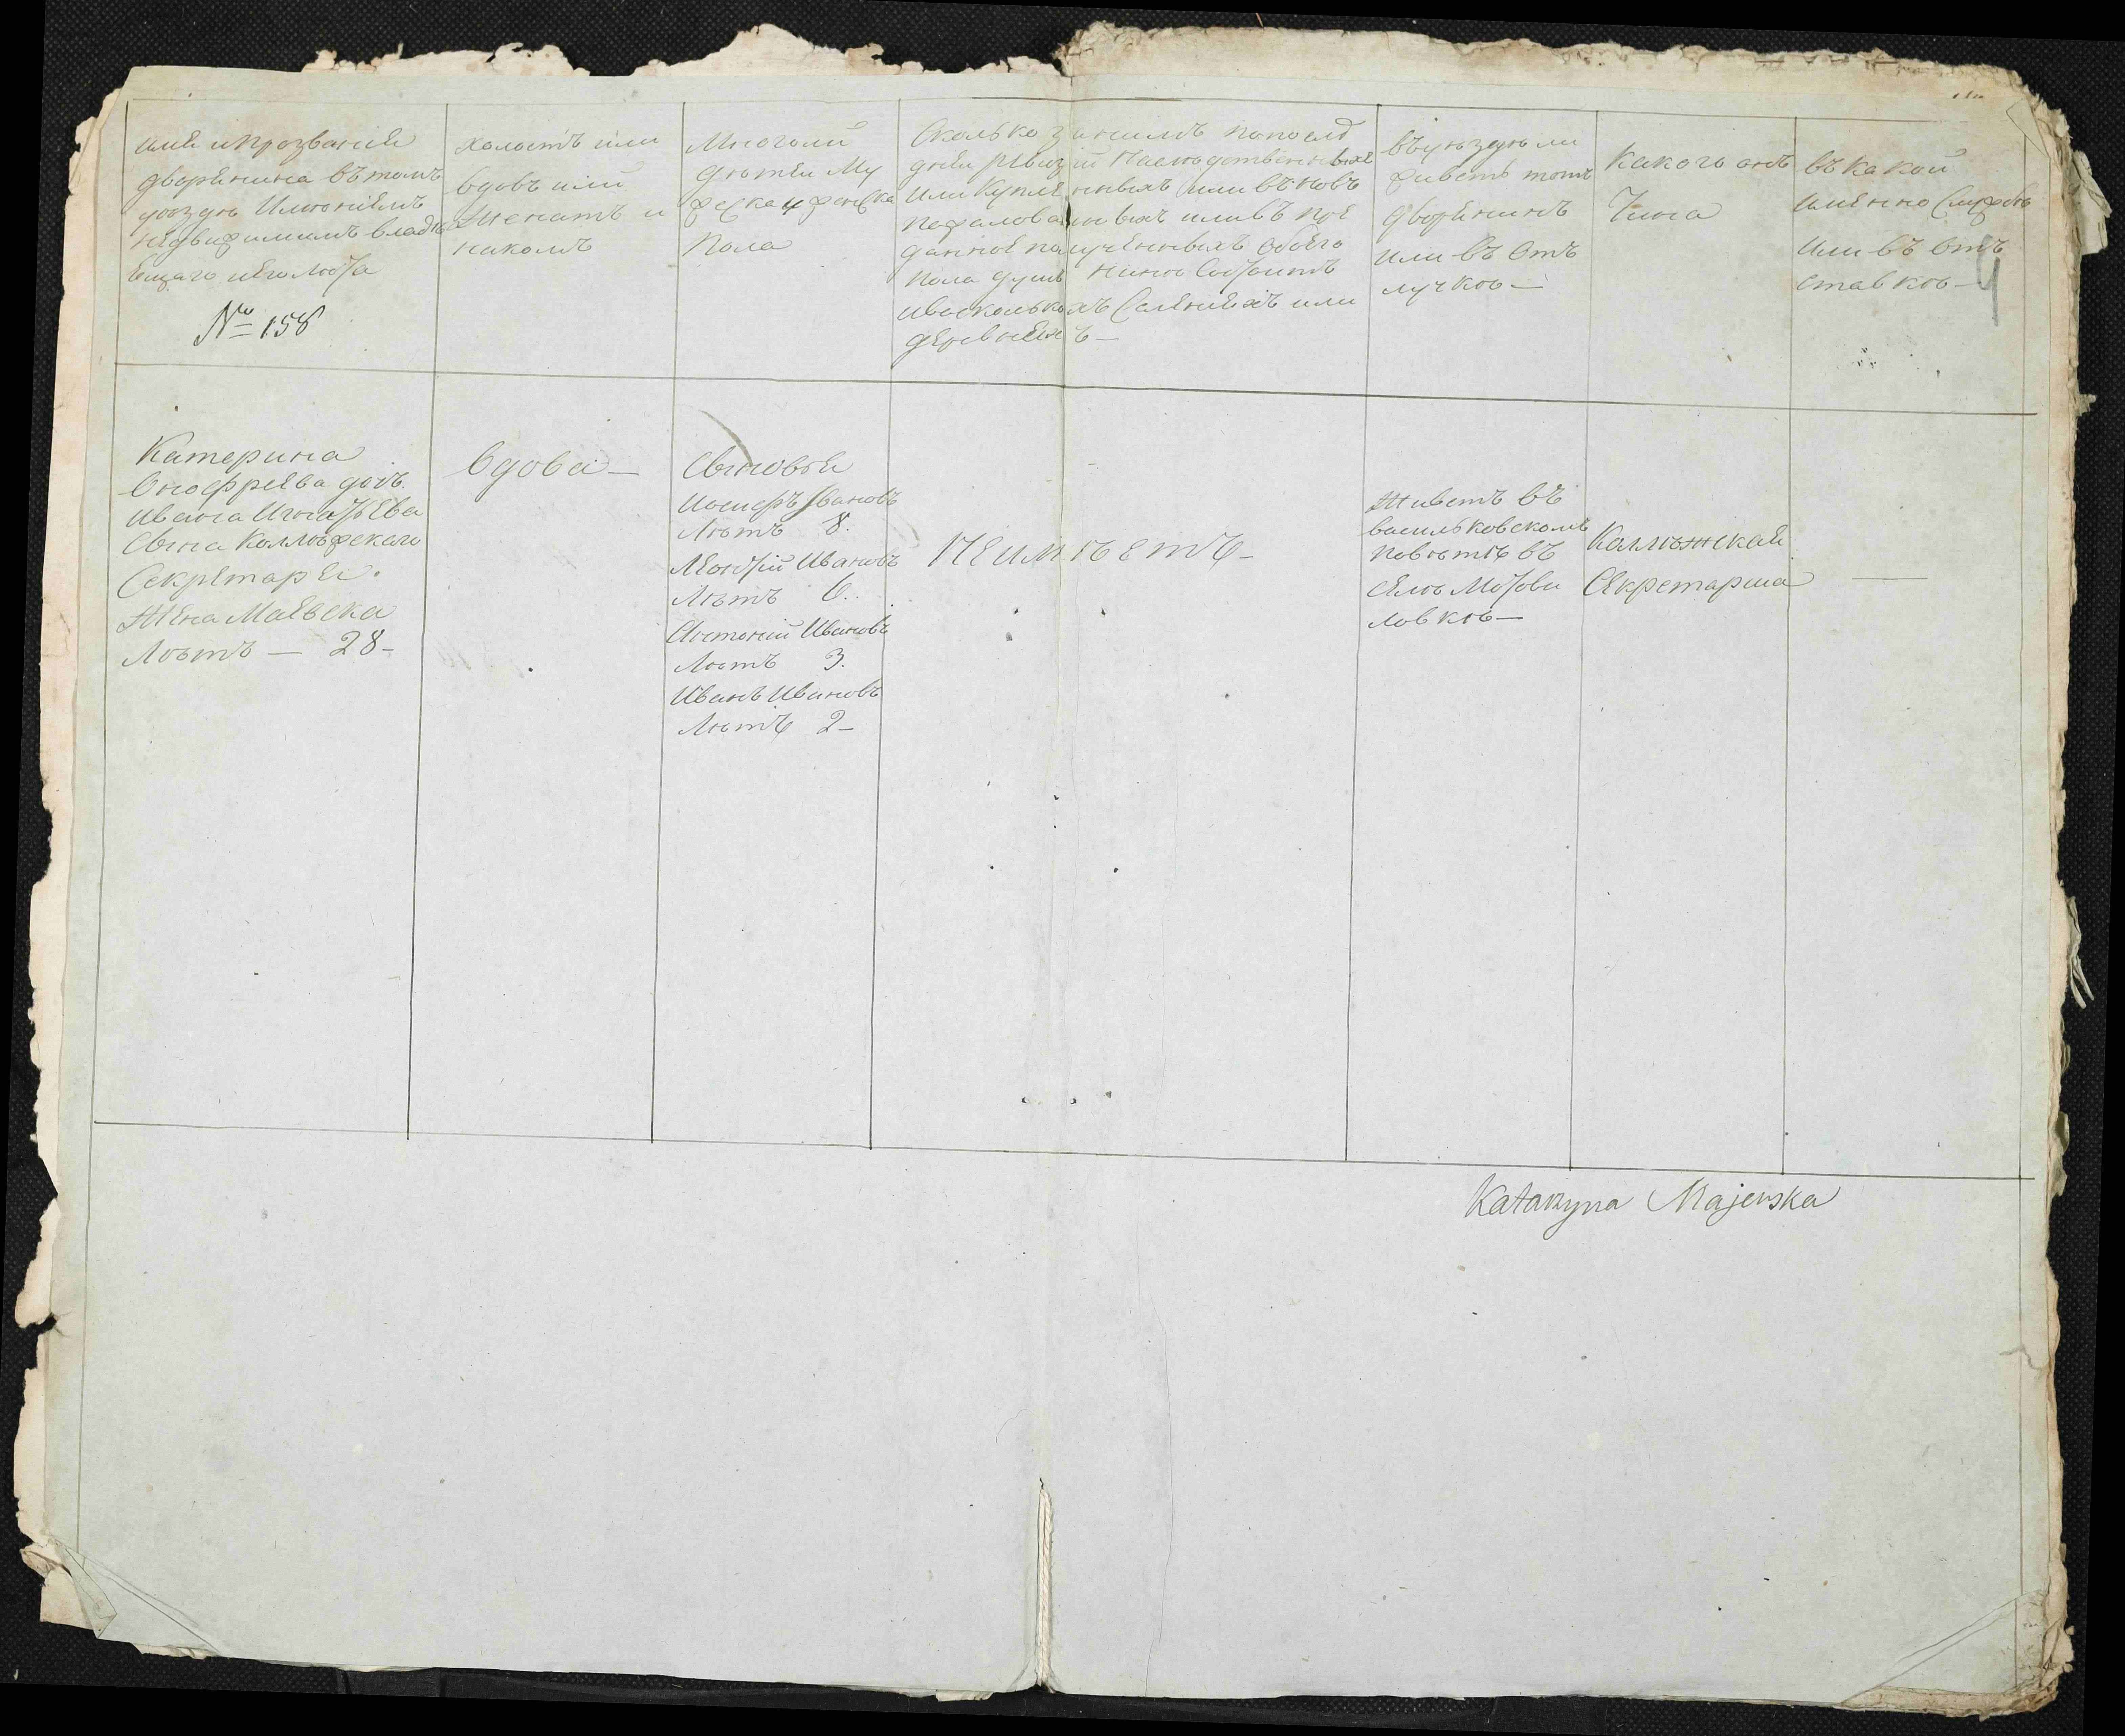 имя и прозвание
дворянина въ томъ
уѣздѣ имѣнiемъ
недвижимимъ владѣ
ющаго и его лѣта
№ 158
холостъ или
вдовъ или
женатъ и
накомъ
Многоли
дѣтей му
жеска и женска
пола
Сколько занимъ попослѣ
дней ревизiи наслѣдственныхъ
или купленныхъ или вѣновъ
пожалованныхъ или въ при
данное полученныхъ обоего
пола душъ нинѣ состоитъ
ивъсколькихъ селенiяхъ или
деревняхъ —
въуѣздѣ ли
живетъ тотъ
дворянинъ
или въ отъ
лучкѣ —
какого онъ
чина
въ какой
именно службѣ
или въ отъ
ставкѣ —
Катерина
Онофреева дочь
Ивана Игнатьева
сына коллѣжскаго
секретаря.
жена Маевска
Лѣтъ — 28 —
вдова —
Сыновья
Иосифъ Ивановъ
Лѣтъ 8.
Леонтiй Ивановъ
Лѣтъ 6.
Антонiй Ивановъ
Лѣтъ 3.
Иванъ Ивановъ
Лѣтъ 2 —
неимѣетъ —
живетъ въ
васильковскомъ
повѣтѣ въ
селѣ Мотови
ловкѣ —
Коллѣжская
секретарша
—
Katarzyna Majewska